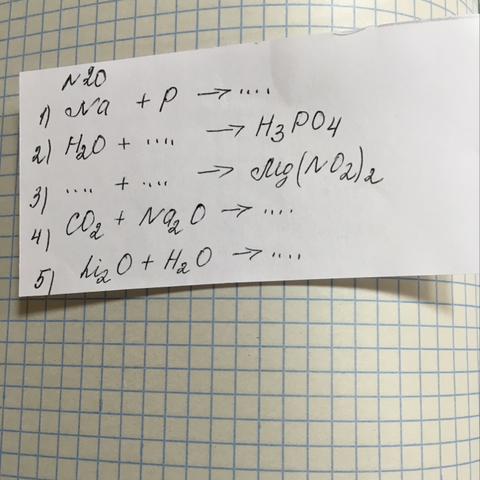 N20
1) Na + P → ....
2) H₂O + .... → H₃PO4
3) .... + .... → Mg(NO₂)₂
4) CO₂ + Na₂O → ....
5) Li₂O + H₂O → ....